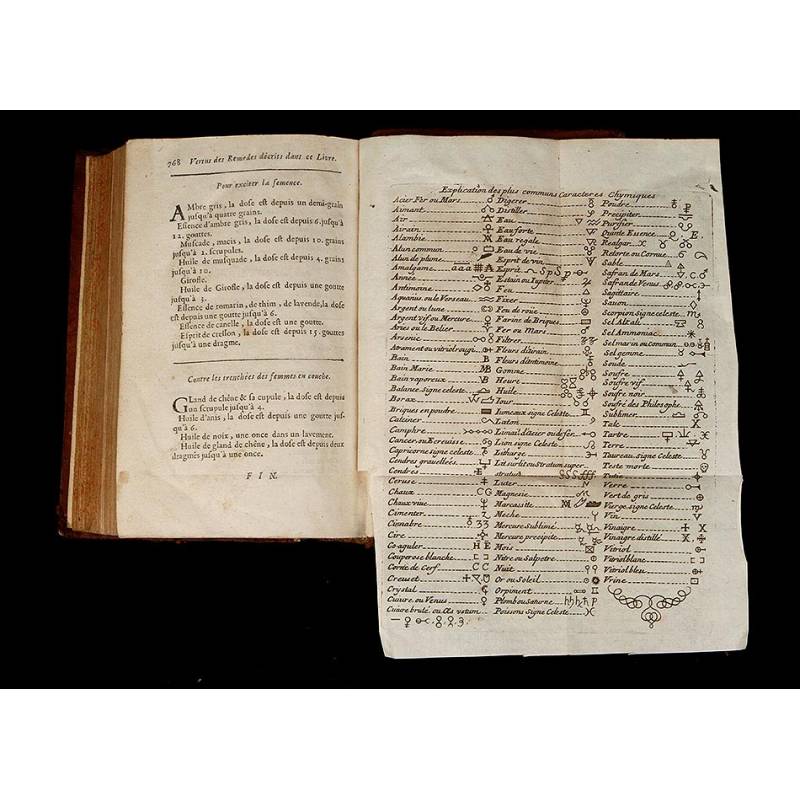 768 Vertus des Remedes décrits dans ce Livre.
Pour exciter la semence.
AMbre gris, la dose est depuis un demi-grain
jusqu'à quatre grains.
Essence d'ambre gris, la dose est depuis 6. jusqu'à
12. gouttes.
Muscade, macis, la dose est depuis 10. grains
jusqu'à 2. scrupules.
Huile de musquade, la dose est depuis 4. grains
jusqu'à 10.
Girofle.
Huile de Girofle, la dose est depuis une goutte
jusqu'à 3.
Essence de romarin, de thim, de lavende, la dose
est depuis une goutte jusqu'à 6.
Essence de canelle, la dose est une goutte.
Esprit de cresson, la dose est depuis 15. gouttes
jusqu'à une dragme.
Contre les trenchées des femmes en couche.
GLand de chêne & sa cupule, la dose est depuis
un scrupule jusqu'à 4.
Huile d'anis, la dose est depuis une goutte jus-
qu'à 6.
Huile de noix, une once dans un lavement.
Huile de gland de chêne, la dose est depuis deux
dragmes jusqu'à une once.
FIN.
Explication des plus communs Caracteres Chymiques
Acier Fer ou Mars
Aimant
Air
Airain
Alambic
Alun commun
Alun de plume
Amalgame aaa
Année
Antimonne
Aquarius ou le Verseau
Argent ou lune
Argent vif ou Mercure
Aries ou le Belier
Arsenic
Atrament ou vitriol rougi
Bain B
Bain Marie MB
Bain vaporeux
Balance Signe celeste
Borax
Briques en poudre
Calciner
Camphre
Cancer ou Ecrevisse
Capricorne signe celeste
Cendres gravellées
Cendres
Ceruse
Chaux C G
Chaux vive
Cimenter Z
Cinnabre
Cire
Coaguler H E
Couperose blanche
Corne de Cerf C C
Creuset
Crystal
Cuivre ou Venus
Cuivre brulé ou Æs ustum
Digerer
Distiller
Eau
Eau forte
Eau regale
Eau de vie
Esprit de vin
Esprit Sp Sp
Estain ou Iupiter
Feu
Fixer
Feu de roue
Farine de Briques
Fer ou Mars
Filtrer
Fleurs d'airain
Fleurs d'Antimoine
Gomme
Heure
Huile
Iour
Iumeaux signe Celeste
Laton
Limail d'acier ou de fer
Lion signe Celeste
Litharge
Lit sur lit ou Stratum super
stratum SSS
Luter
Magnesie
Marcassite
Meche
Mercure Sublimé
Mercure precipité
Mois
Nitre ou Salpetre
Nuit
Or ou Soleil
Orpiment
Plomb ou Saturne
Poissons Signe Celeste
Poudre
Precipiter
Purifier
Quinte Essence
Realgar
Retorte ou Cornue
Sable
Safran de Mars
Safran de Venus
Sagittaire
Savon
Scorpion signe celeste
Sel Alkali
Sel Ammoniac
Sel marin ou commun
Sel gemme
Soude
Souffre
Souffre vif
Soufre noir
Soufré des Philosophe
Sublimer
Talc X
Tartre
Terre
Taureau signe Celeste
Teste morte
Tutie
Verre
Vert de gris
Vierge signe Celeste
Vin
Vinaigre
Vinaigre distillé
Vitriol
Vitriol blanc
Vitriol bleu
Vrine